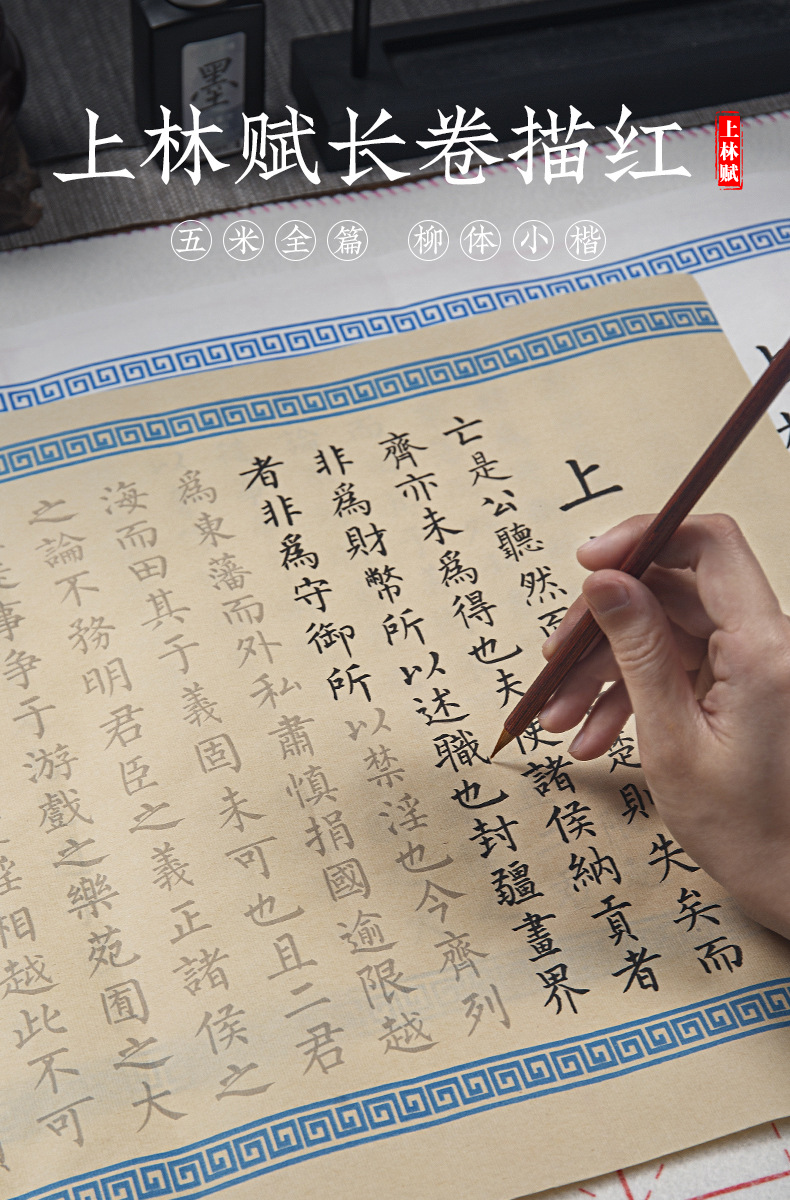 墨
上林赋长卷描红
上林赋
五米全篇 柳体小楷
上
亡是公聽然而 楚則失矣而
齊亦未為得也夫使諸侯納貢者
非爲財幣所以述職也封疆畫界
者非爲守御所以禁淫也今齊列
爲東藩而外私肅慎捐國逾限越
海而田其于義固未可也且二君
之論不務明君臣之義正諸侯之
事争于游戲之樂苑囿之大
淫相越此不可